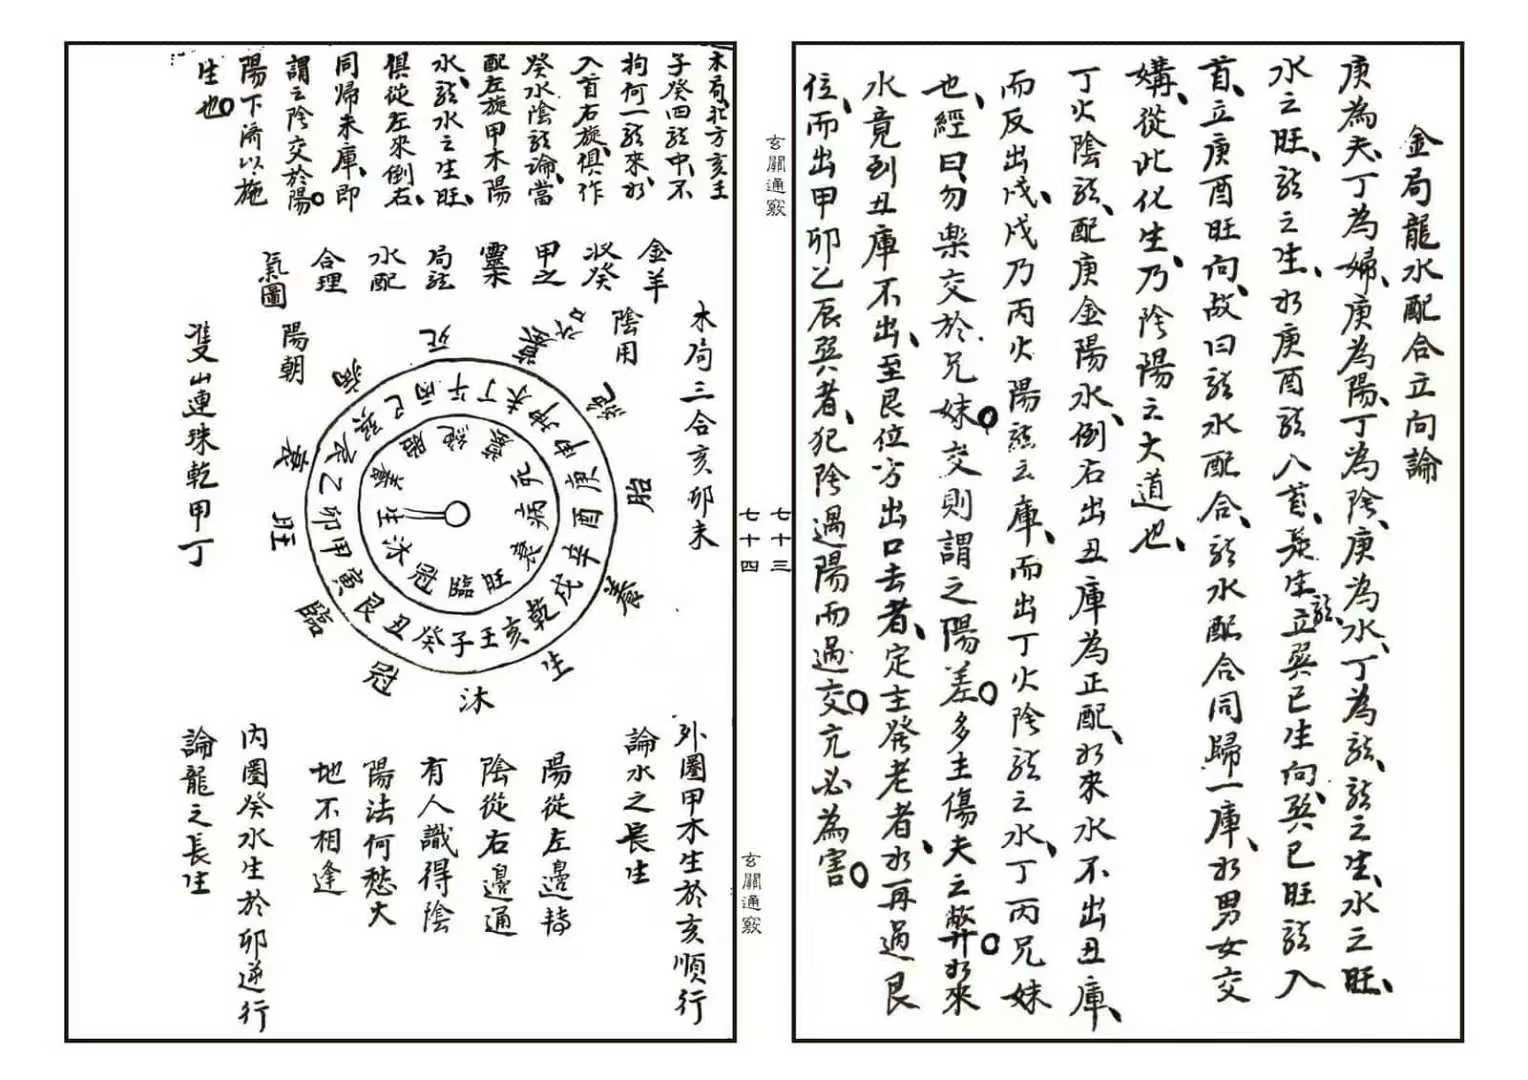 金局龍水配合立向論
庚為夫、丁為婦、庚為陽、丁為陰、庚為水、丁為龍、龍之生、水之旺、
水之旺、龍之生、水庚酉龍入首、長生龍、立巽巳生向、巽巳旺龍入
首、立庚酉旺向、故曰龍水配合、龍水配合同歸一庫、水男女交
媾、從此化生、乃陰陽之大道也、
丁火陰龍、配庚金陽水、倒右出丑庫為正配、水來水不出丑庫、
而反出戌、戌乃丙火陽龍之庫、而出丁火陰龍之水、丁丙兄妹
也、經曰、勿樂交於兄妹。交則謂之陽差。多主傷夫之弊。水來
水竟到丑庫不出、至艮位方出口去者、定主癸老者、水再過艮
位、而出甲卯乙辰巽者、犯陰遇陽而過交。亢必為害。
玄關通竅
七十三
七十四
玄關通竅
木局北方亥壬
子癸四龍中、不
拘何一龍來、水
入首右旋、俱作
癸水陰龍論、當
配左旋甲木陽
水、龍水之生旺、
俱從左來倒右、
同歸未庫、即
謂之陰交於陽。
陽下濟以施
生也。
金羊
收癸
甲之
靈
局龍
水配
合理
氣圖
木局三合亥卯未
陰用
陽朝
雙山連珠乾甲丁
死
病
衰
旺
臨
冠
沐
生
養
胎
絕
墓
丙午丁未坤申庚酉辛戌乾亥壬子癸丑艮寅甲卯乙辰巽巳
胎絕墓死病衰旺臨冠沐生養
外圈甲木生於亥順行
論水之長生
陽從左邊轉
陰從右邊通
有人識得陰
陽法何愁大
地不相逢
內圈癸水生於卯逆行
論龍之長生